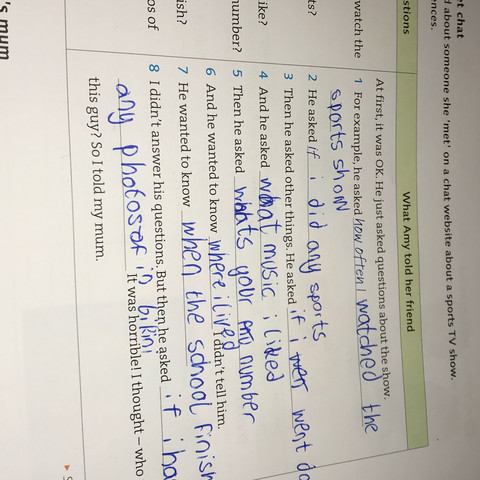 t chat
d about someone she 'met' on a chat website about a sports TV show.
ences.
stions
What Amy told her friend
At first, it was OK. He just asked questions about the show.
watch the
1 For example, he asked how often I watched the
sports show
ts?
2 He asked if i did any sports
3 Then he asked other things. He asked if i went
ike?
4 And he asked what music i liked
number?
5 Then he asked whats your number
6 And he wanted to know where i lived I didn't tell him.
ish?
7 He wanted to know when the school finish
os of
8 I didn't answer his questions. But then he asked if i ha
any photos of in bikini It was horrible! I thought – who
this guy? So I told my mum.
's mum